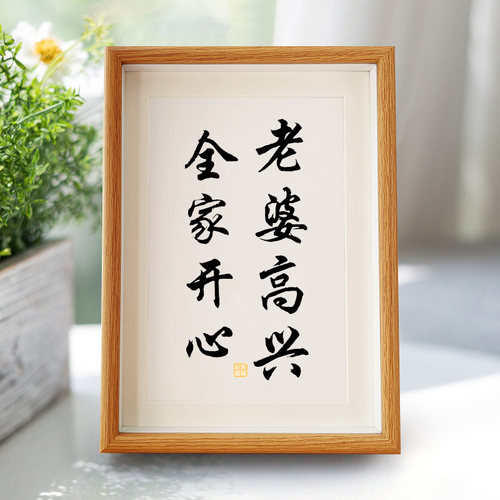 老婆高兴
全家开心